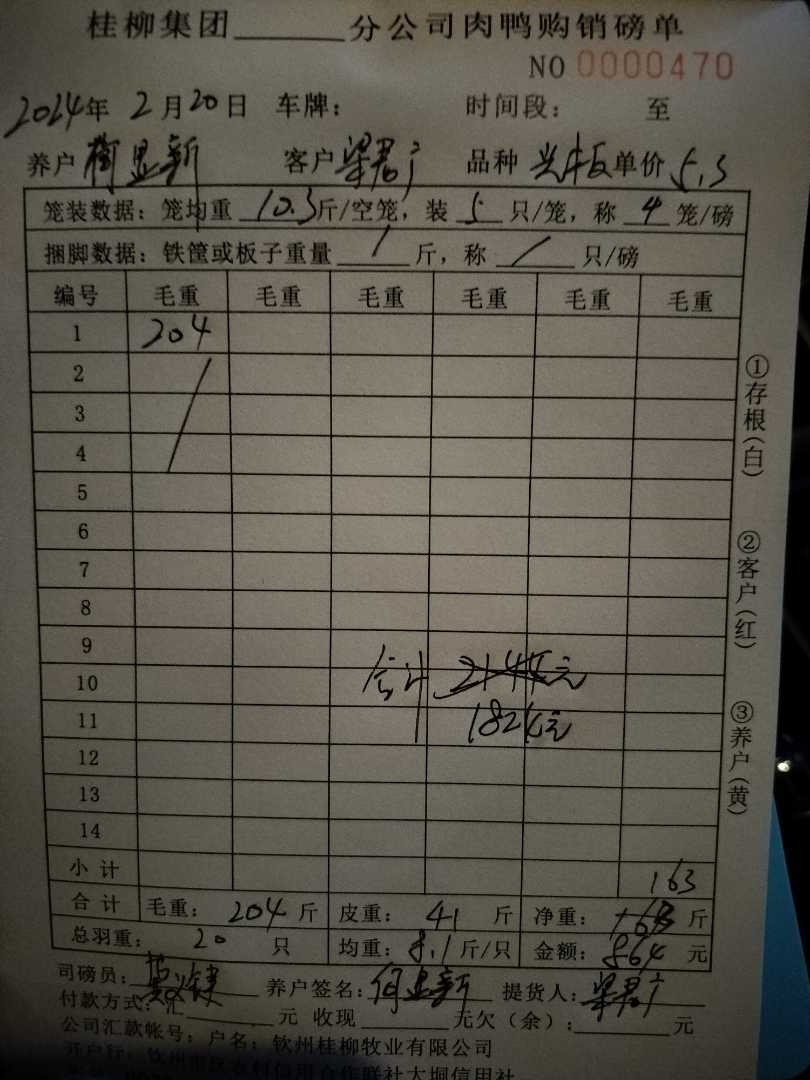 桂柳集团______分公司肉鸭购销磅单
NO 0000470
2024年 2月20日 车牌: 时间段: 至
养户 何显新 客户 梁君广 品种 光板 单价 5.3
笼装数据: 笼均重 10.3 斤/空笼, 装 5 只/笼, 称 4 笼/磅
捆脚数据: 铁筐或板子重量 / 斤, 称 / 只/磅
编号 毛重 毛重 毛重 毛重 毛重 毛重
1 204
2
3
4
5
6
7
8
9
10 合计 214元
11 182元
12
13
14
小计 163
合计 毛重: 204 斤 皮重: 41 斤 净重: 163 斤
总羽重: 20 只 均重: 8.1 斤/只 金额: 864 元
司磅员: 养户签名: 何显新 提货人: 梁君广
付款方式: 汇______元 收现______元欠(余):______元
公司汇款帐号: 户名: 钦州桂柳牧业有限公司
①存根(白)
②客户(红)
③养户(黄)